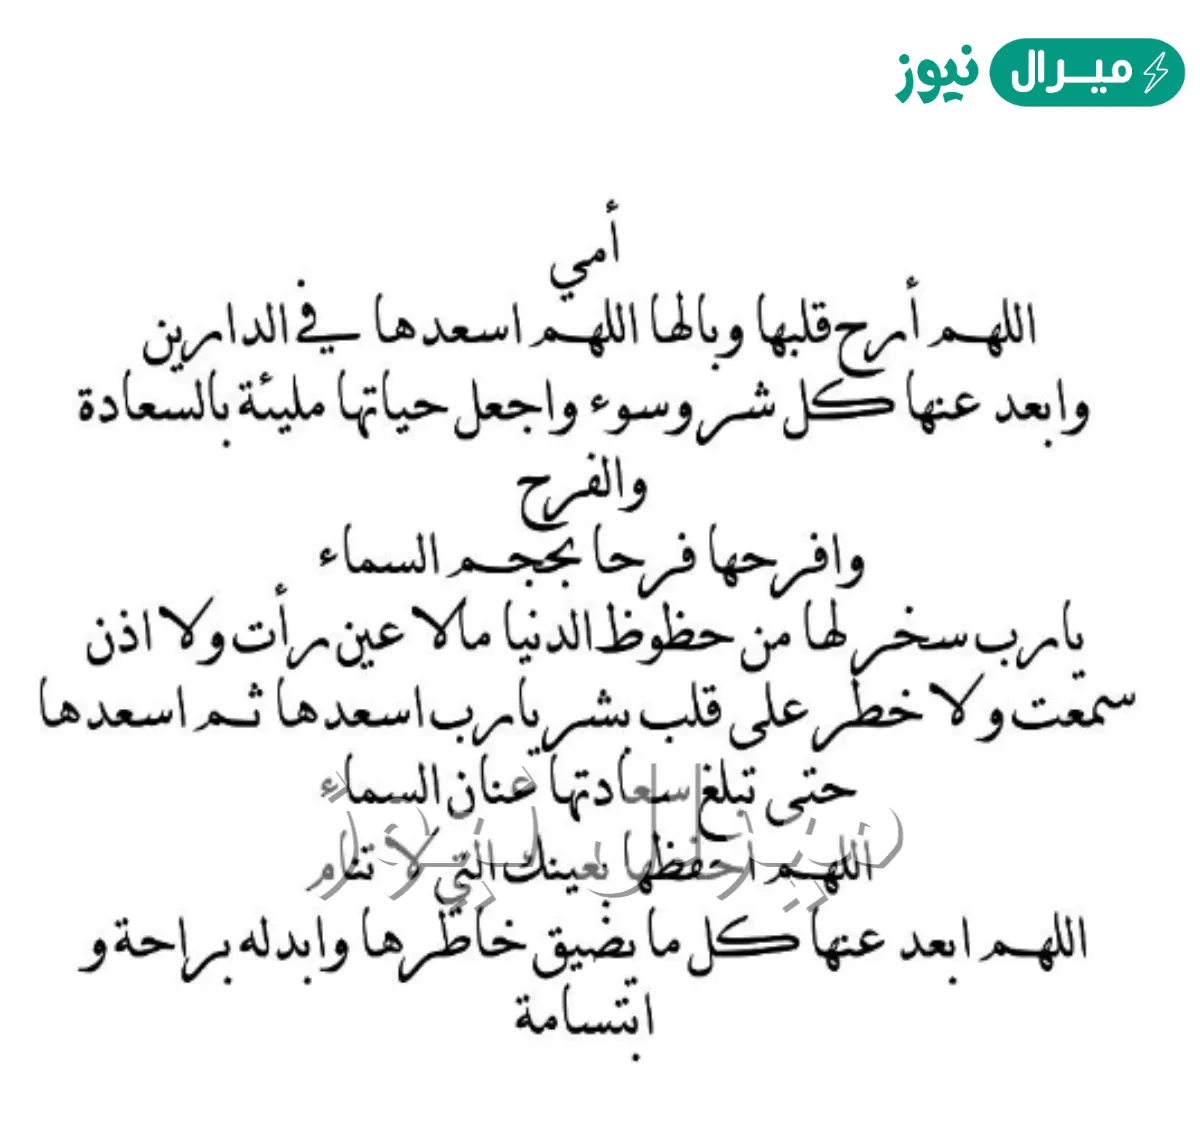 ميرال نيوز
أمي
اللهم أرح قلبها وبالها اللهم اسعدها في الدارين
وابعد عنها كل شر وسوء واجعل حياتها مليئة بالسعادة
والفرح
وافرحها فرحا بحجم السماء
يارب سخر لها من حظوظ الدنيا مالا عين رأت ولا اذن
سمعت ولا خطر على قلب بشر يارب اسعدها ثم اسعدها
حتى تبلغ سعادتها عنان السماء
اللهم احفظها بعينك التي لا تنام
اللهم ابعد عنها كل ما يضيق خاطرها وابدله براحة و
ابتسامة
ميرال نيوز